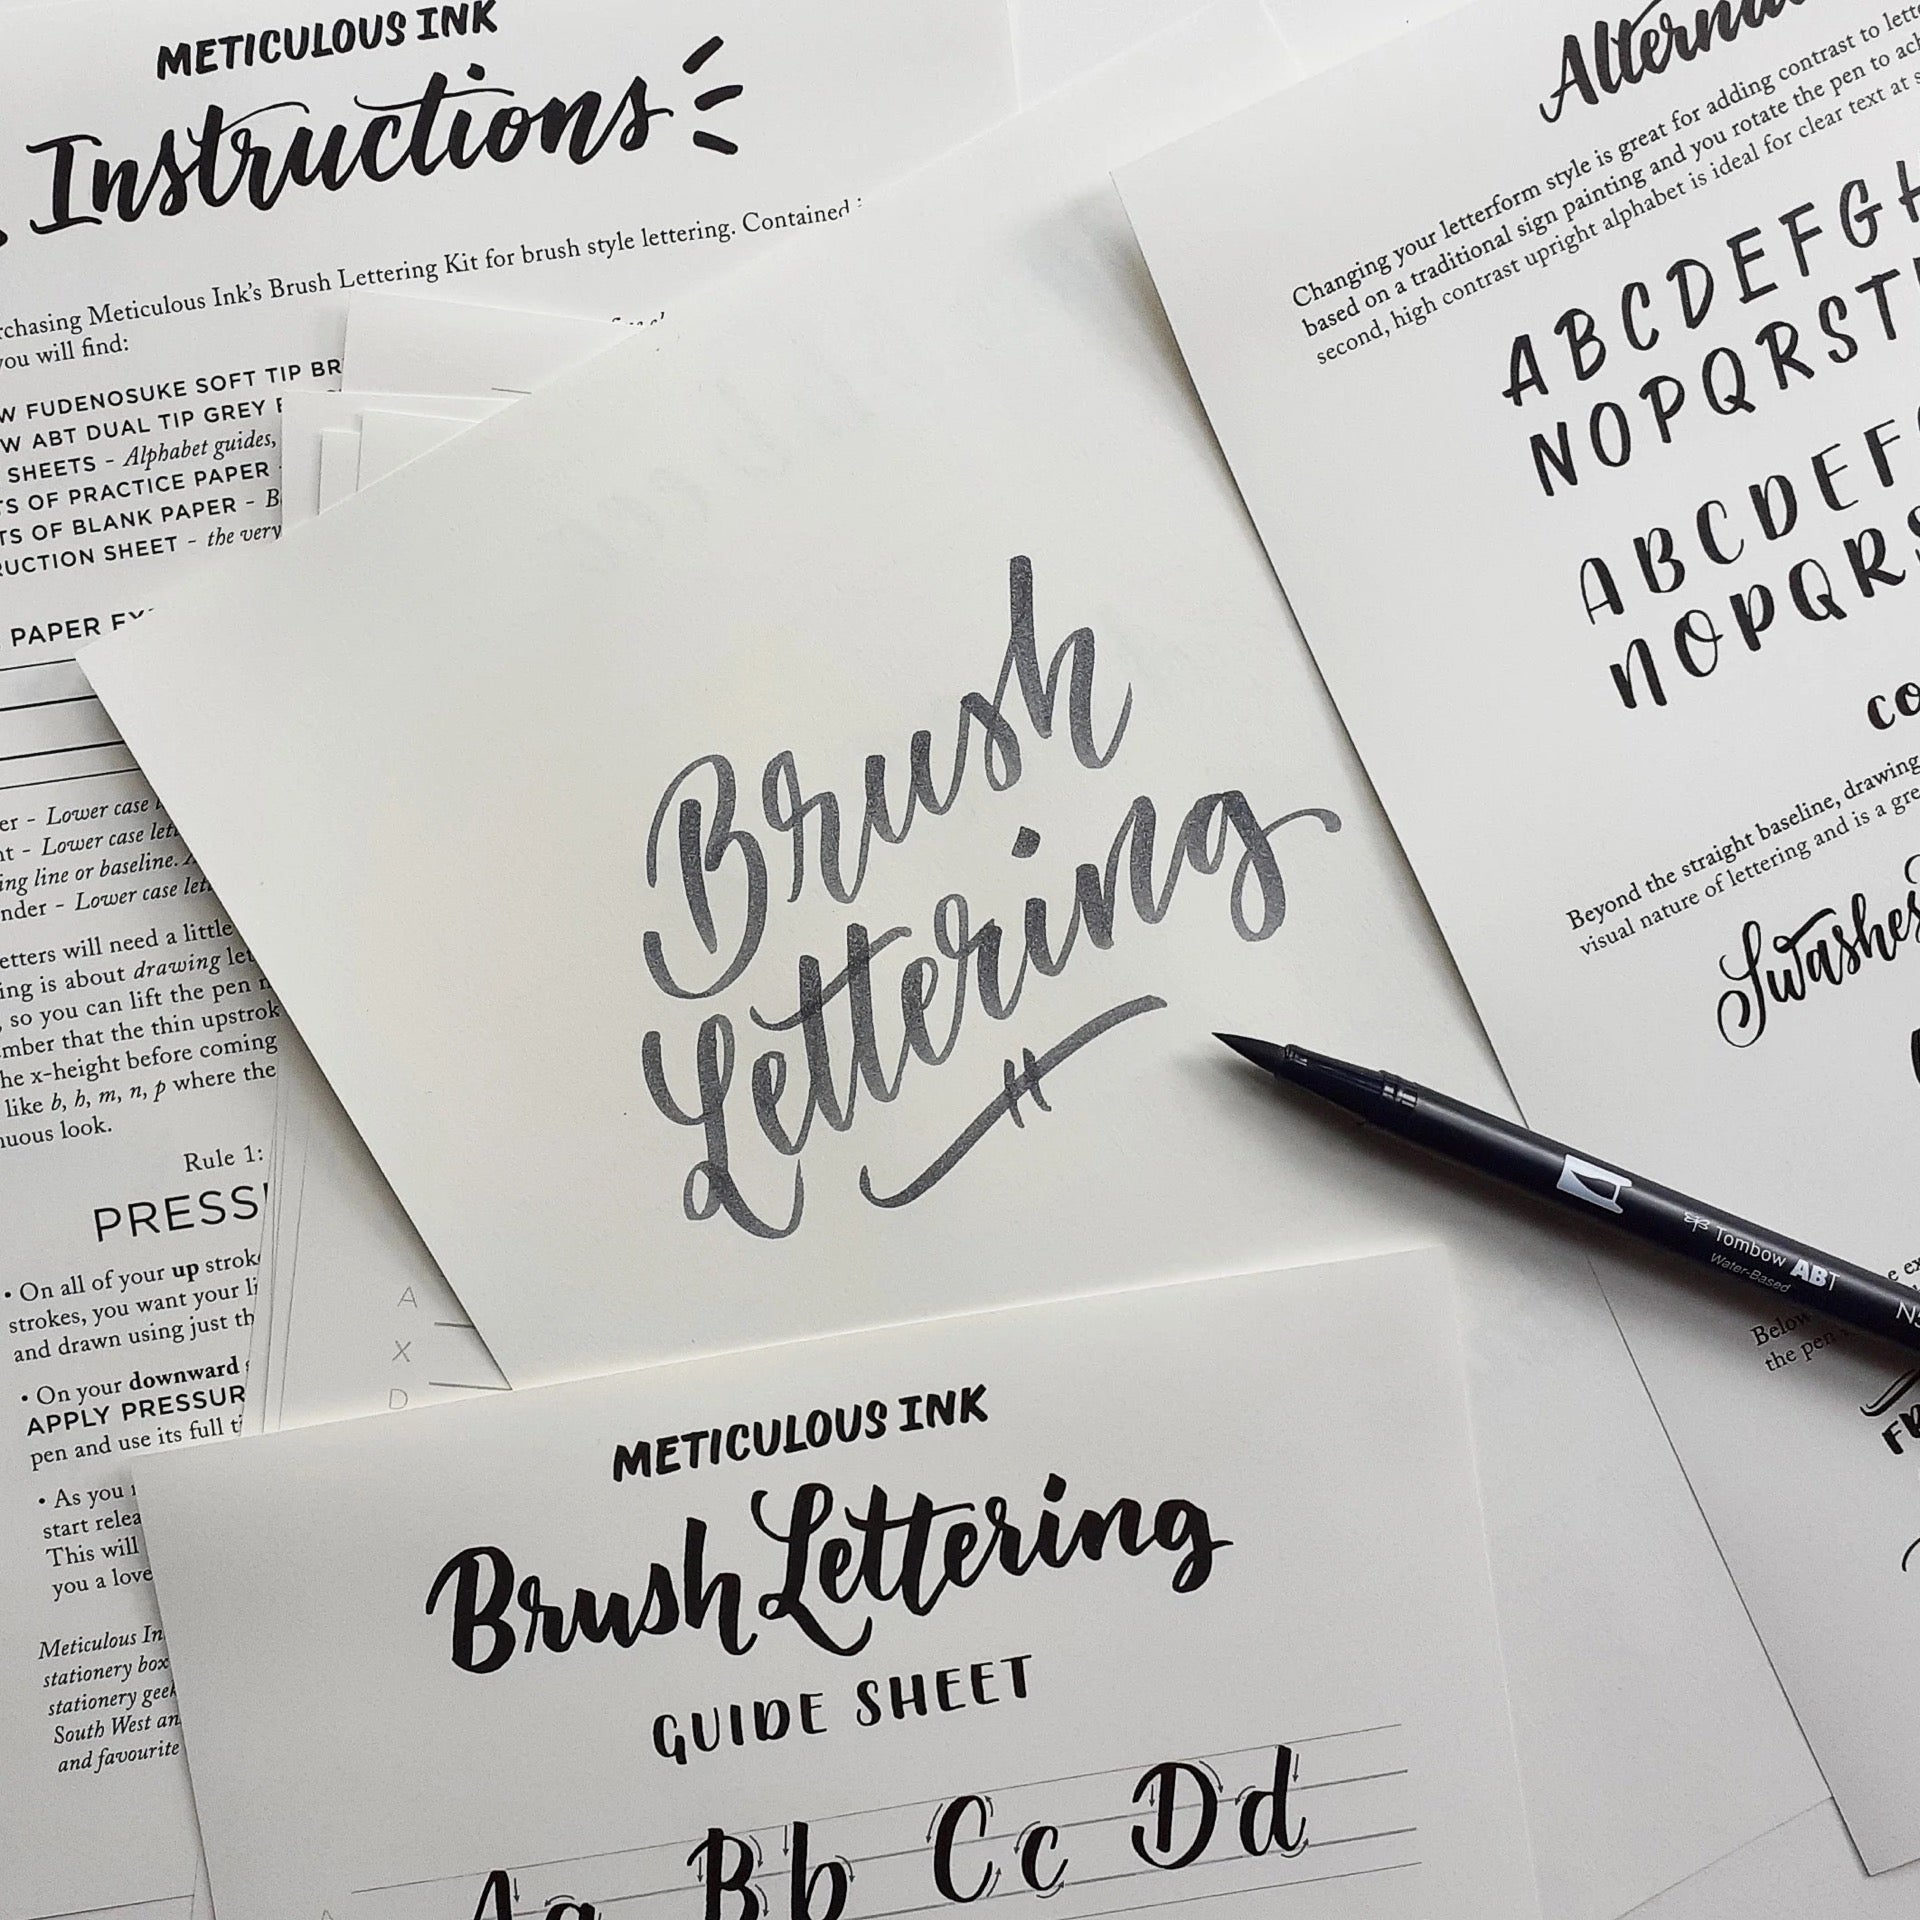 METICULOUS INK
Instructions
chasing Meticulous Ink's Brush Lettering Kit for brush style lettering. Contained
you will find:
FUDENOSUKE SOFT TIP BR
ABT DUAL TIP GREY
SHEETS - Alphabet guides,
OF PRACTICE PAPER
OF BLANK PAPER - B
RUCTION SHEET - the very
PAPER
er - Lower case
nt - Lower case lett
ing line or baseline.
nder - Lower case let
etters will need a little
ing is about drawing let
, so you can lift the pen
mber that the thin upstrok
he x-height before coming
like b, h, m, n, p where the
nuous look.
Rule 1:
PRESS
• On all of your up strok
strokes, you want your li
and drawn using just th
• On your downward
APPLY PRESSUR
pen and use its full ti
• As you
start relea
This will
you a love
Meticulous In
stationery box
stationery geek
South West an
and favourite
A
X
D
Brush
Lettering
METICULOUS INK
Brush Lettering
GUIDE SHEET
Aa Bb Cc Dd
Alterna
Changing your letterform style is great for adding contrast to lette
based on a traditional sign painting and you rotate the pen to ach
second, high contrast upright alphabet is ideal for clear text at s
ABCDEFGH
NOPQRST
ABCDEF
NOPQRS
CO
Beyond the straight baseline, drawing
visual nature of lettering and is a gre
Swashes
Tombow ABT
Water-Based
Below
the pen